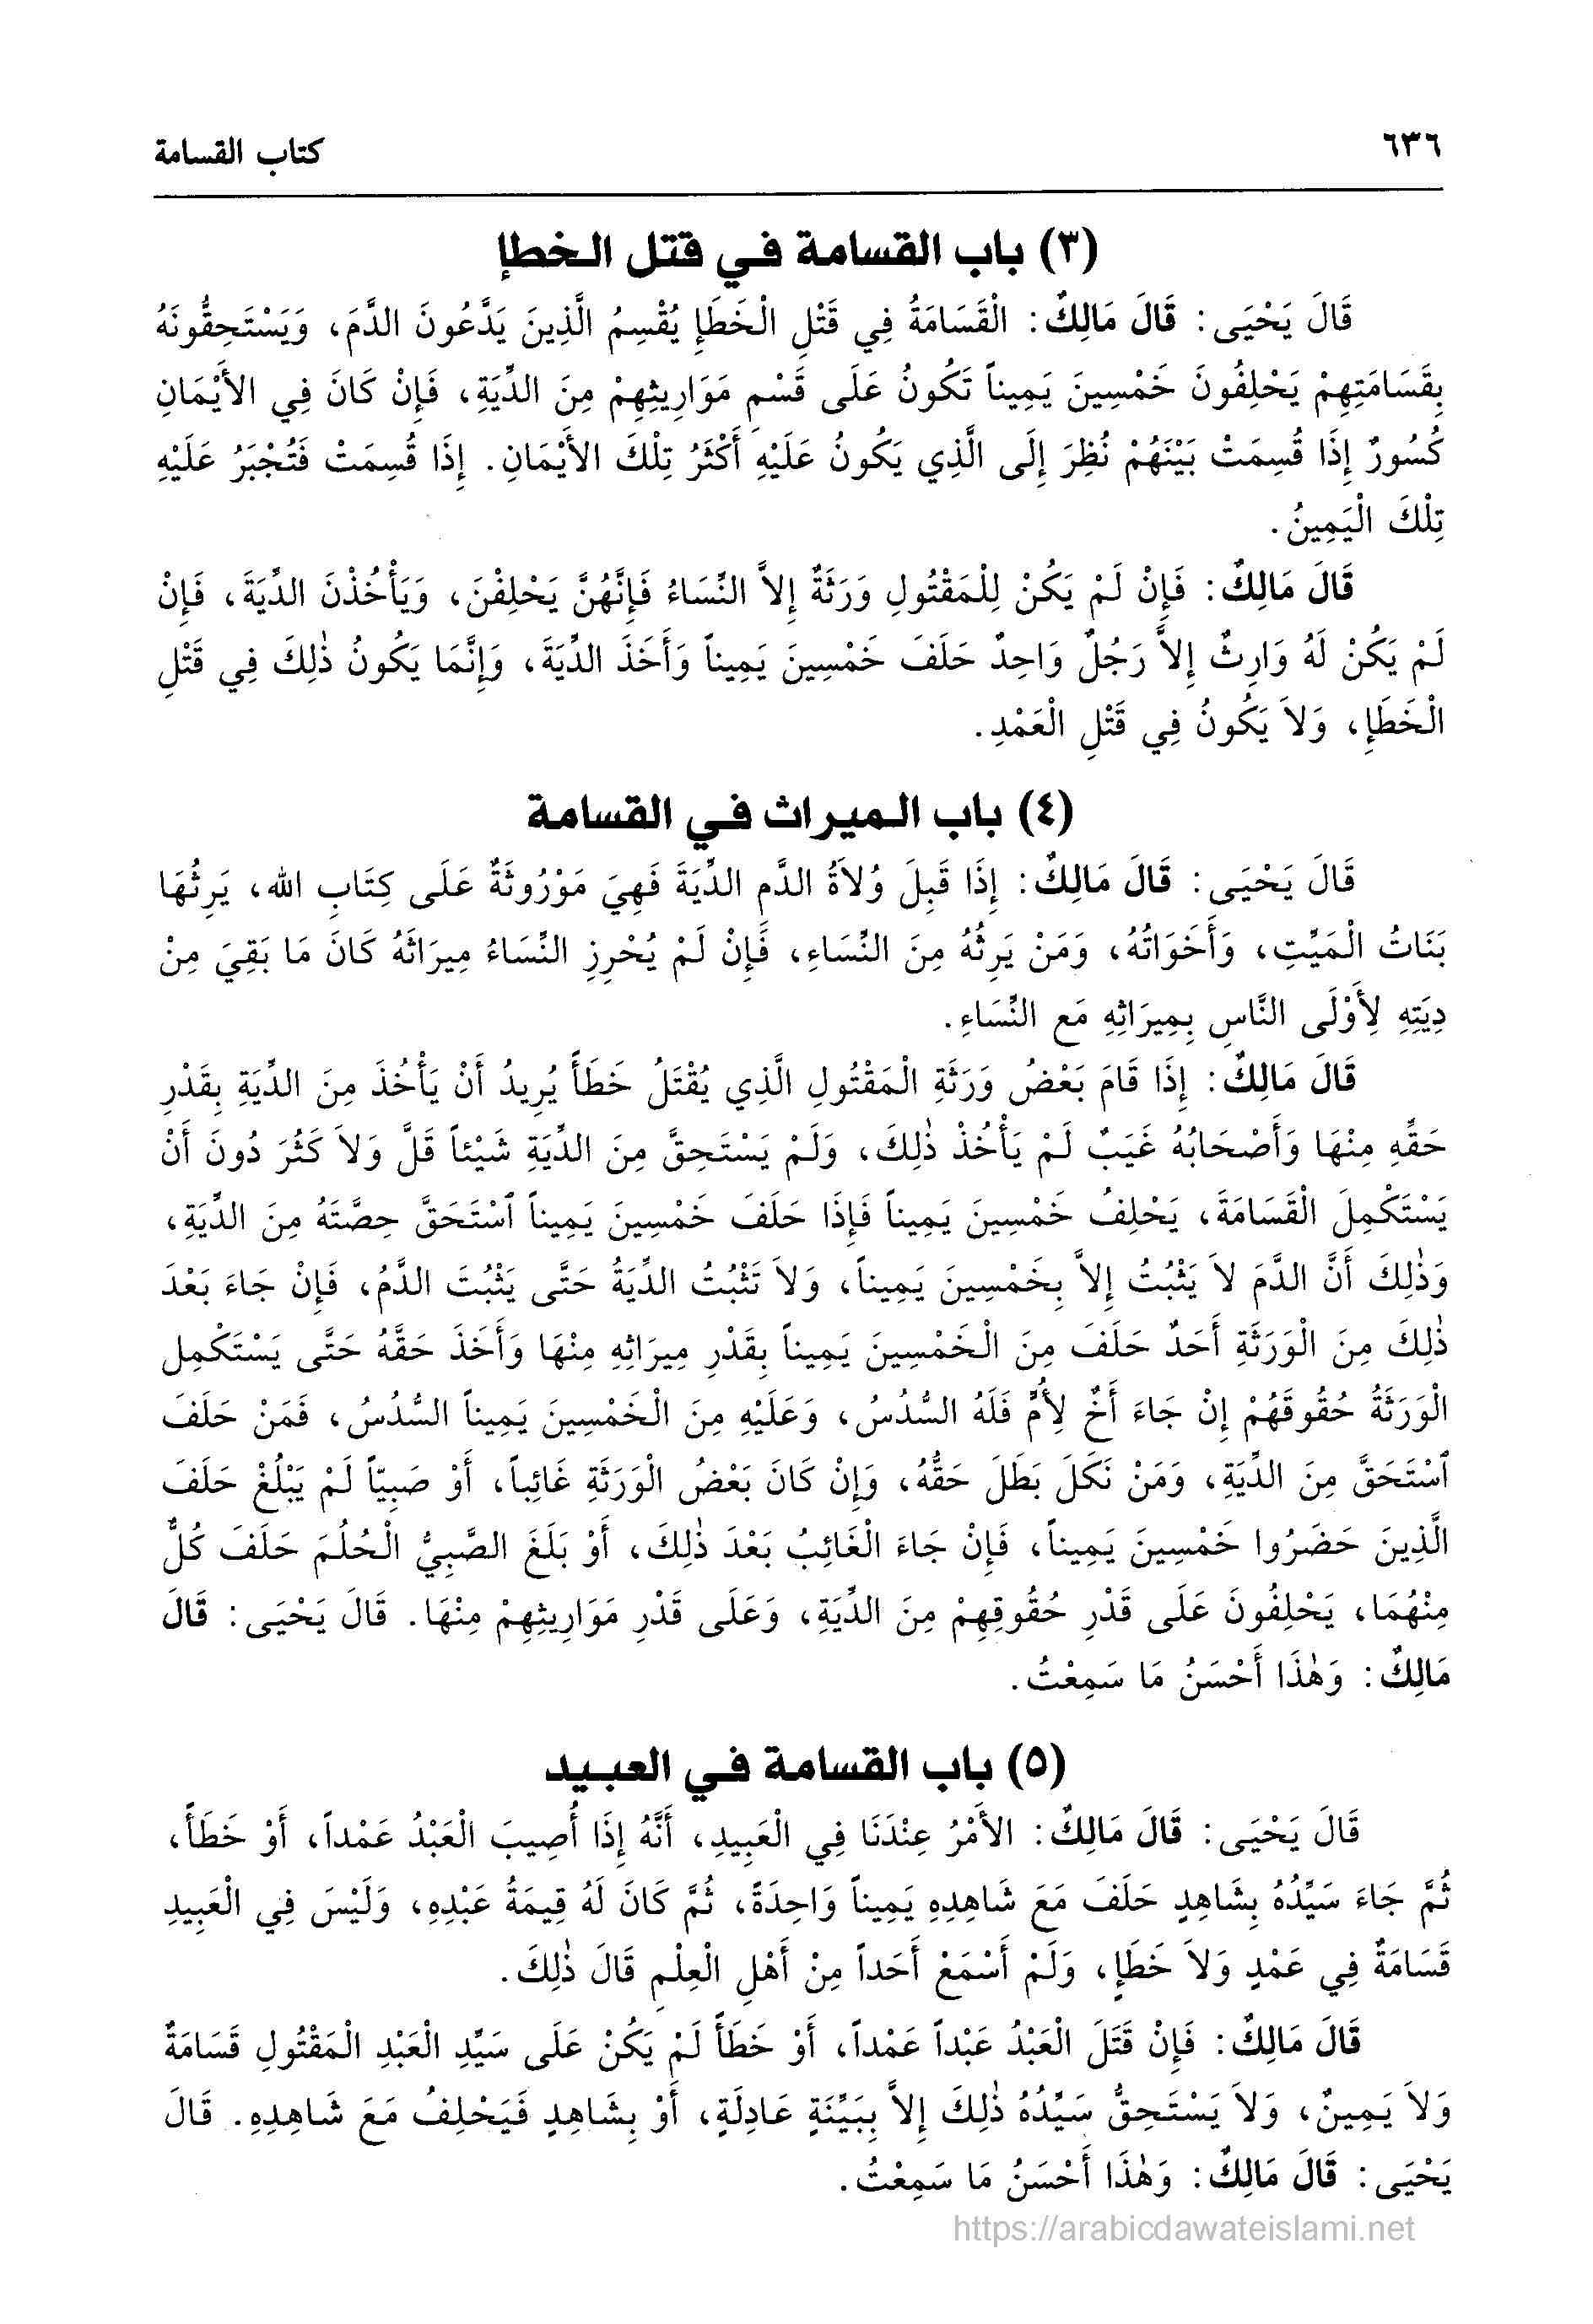 ٦٣٦
كتاب القسامة
(٣) باب القسامة في قتل الخطإ
قَالَ يَحْيَى: قَالَ مَالِكٌ: الْقَسَامَةُ فِي قَتْلِ الْخَطَإِ يُقْسِمُ الَّذِينَ يَدَّعُونَ الدَّمَ، وَيَسْتَحِقُّونَهُ
بِقَسَامَتِهِمْ يَحْلِفُونَ خَمْسِينَ يَمِيناً تَكُونُ عَلَى قَسْمِ مَوَارِيثِهِمْ مِنَ الدِّيَةِ، فَإِنْ كَانَ فِي الأَيْمَانِ
كُسُورٌ إِذَا قُسِمَتْ بَيْنَهُمْ نُظِرَ إِلَى الَّذِي يَكُونُ عَلَيْهِ أَكْثَرُ تِلْكَ الأَيْمَانِ. إِذَا قُسِمَتْ فَتُجْبَرُ عَلَيْهِ
تِلْكَ الْيَمِينُ.
قَالَ مَالِكٌ: فَإِنْ لَمْ يَكُنْ لِلْمَقْتُولِ وَرَثَةٌ إِلاَّ النِّسَاءُ فَإِنَّهُنَّ يَحْلِفْنَ، وَيَأْخُذْنَ الدِّيَةَ، فَإِنْ
لَمْ يَكُنْ لَهُ وَارِثٌ إِلاَّ رَجُلٌ وَاحِدٌ حَلَفَ خَمْسِينَ يَمِيناً وَأَخَذَ الدِّيَةَ، وَإِنَّمَا يَكُونُ ذٰلِكَ فِي قَتْلِ
الْخَطَإِ، وَلاَ يَكُونُ فِي قَتْلِ الْعَمْدِ.
(٤) باب الميراث في القسامة
قَالَ يَحْيَى: قَالَ مَالِكٌ: إِذَا قَبِلَ وُلاَةُ الدَّمِ الدِّيَةَ فَهِيَ مَوْرُوثَةٌ عَلَى كِتَابِ الله، يَرِثُهَا
بَنَاتُ الْمَيِّتِ، وَأَخَوَاتُهُ، وَمَنْ يَرِثُهُ مِنَ النِّسَاءِ، فَإِنْ لَمْ يُحْرِزِ النِّسَاءُ مِيرَاثَهُ كَانَ مَا بَقِيَ مِنْ
دِيَتِهِ لِأَوْلَى النَّاسِ بِمِيرَاثِهِ مَع النِّسَاءِ.
قَالَ مَالِكٌ: إِذَا قَامَ بَعْضُ وَرَثَةِ الْمَقْتُولِ الَّذِي يُقْتَلُ خَطَأً يُرِيدُ أَنْ يَأْخُذَ مِنَ الدِّيَةِ بِقَدْرِ
حَقِّهِ مِنْهَا وَأَصْحَابُهُ غَيَبٌ لَمْ يَأْخُذْ ذٰلِكَ، وَلَمْ يَسْتَحِقَّ مِنَ الدِّيَةِ شَيْئاً قَلَّ وَلاَ كَثُرَ دُونَ أَنْ
يَسْتَكْمِلَ الْقَسَامَةَ، يَحْلِفُ خَمْسِينَ يَمِيناً فَإِذَا حَلَفَ خَمْسِينَ يَمِيناً ٱسْتَحَقَّ حِصَّتَهُ مِنَ الدِّيَةِ،
وَذٰلِكَ أَنَّ الدَّمَ لاَ يَثْبُتُ إِلاَّ بِخَمْسِينَ يَمِيناً، وَلاَ تَثْبُتُ الدِّيَةُ حَتَّى يَثْبُتَ الدَّمُ، فَإِنْ جَاءَ بَعْدَ
ذٰلِكَ مِنَ الْوَرَثَةِ أَحَدٌ حَلَفَ مِنَ الْخَمْسِينَ يَمِيناً بِقَدْرِ مِيرَاثِهِ مِنْهَا وَأَخَذَ حَقَّهُ حَتَّى يَسْتَكْمِل
الْوَرَثَةُ حُقُوقَهُمْ إِنْ جَاءَ أَخٌ لِأُمٍّ فَلَهُ السُّدُسُ، وَعَلَيْهِ مِنَ الْخَمْسِينَ يَمِيناً السُّدُسُ، فَمَنْ حَلَفَ
ٱسْتَحَقَّ مِنَ الدِّيَةِ، وَمَنْ نَكَلَ بَطَلَ حَقُّهُ، وَإِنْ كَانَ بَعْضُ الْوَرَثَةِ غَائِباً، أَوْ صَبِيّاً لَمْ يَبْلُغْ حَلَفَ
الَّذِينَ حَضَرُوا خَمْسِينَ يَمِيناً، فَإِنْ جَاءَ الْغَائِبُ بَعْدَ ذٰلِكَ، أَوْ بَلَغَ الصَّبِيُّ الْحُلُمَ حَلَفَ كُلٌّ
مِنْهُمَا، يَحْلِفُونَ عَلَى قَدْرِ حُقُوقِهِمْ مِنَ الدِّيَةِ، وَعَلَى قَدْرِ مَوَارِيثِهِمْ مِنْهَا. قَالَ يَحْيَى: قَالَ
مَالِكٌ: وَهٰذَا أَحْسَنُ مَا سَمِعْتُ.
(٥) باب القسامة في العبيد
قَالَ يَحْيَى: قَالَ مَالِكٌ: الأَمْرُ عِنْدَنَا فِي الْعَبِيدِ، أَنَّهُ إِذَا أُصِيبَ الْعَبْدُ عَمْداً، أَوْ خَطَأً،
ثُمَّ جَاءَ سَيِّدُهُ بِشَاهِدٍ حَلَفَ مَعَ شَاهِدِهِ يَمِيناً وَاحِدَةً، ثُمَّ كَانَ لَهُ قِيمَةُ عَبْدِهِ، وَلَيْسَ فِي الْعَبِيدِ
قَسَامَةٌ فِي عَمْدٍ وَلاَ خَطَإٍ، وَلَمْ أَسْمَعْ أَحَداً مِنْ أَهْلِ الْعِلْمِ قَالَ ذٰلِكَ.
قَالَ مَالِكٌ: فَإِنْ قَتَلَ الْعَبْدُ عَبْداً عَمْداً، أَوْ خَطَأً لَمْ يَكُنْ عَلَى سَيِّدِ الْعَبْدِ الْمَقْتُولِ قَسَامَةٌ
وَلاَ يَمِينٌ، وَلاَ يَسْتَحِقُّ سَيِّدُهُ ذٰلِكَ إِلاَّ بِبَيِّنَةٍ عَادِلَةٍ، أَوْ بِشَاهِدٍ فَيَحْلِفُ مَعَ شَاهِدِهِ. قَالَ
يَحْيَى: قَالَ مَالِكٌ: وَهٰذَا أَحْسَنُ مَا سَمِعْتُ.
https://arabicdawateislami.net